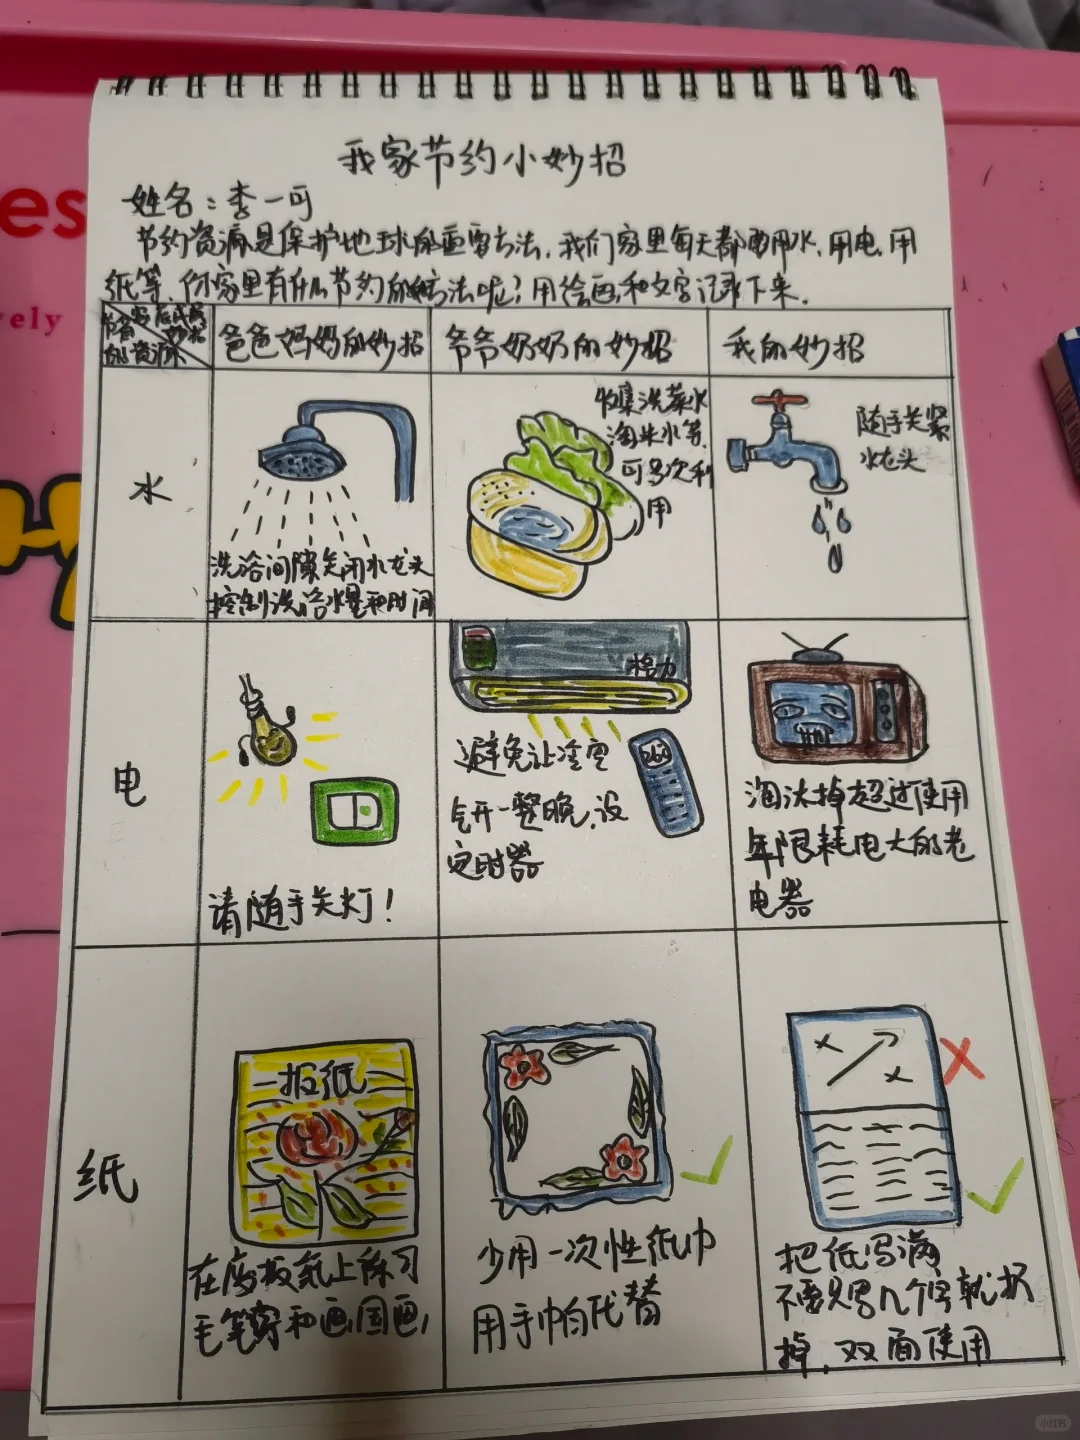 我家节约小妙招
姓名：李一可
节约资源是保护地球的重要方法，我们家里每天都要用水、用电、用
纸等，你家里有什么节约的好方法呢？用绘画和文字记录下来。
家庭成员
妙招
节省
的资源
爸爸妈妈的妙招
爷爷奶奶的妙招
我的妙招
水
洗浴间隙关闭水龙头
控制洗浴水量和时间
收集洗菜水
淘米水等，
可多次利
用
随手关紧
水龙头
电
请随手关灯！
格力
260
避免让冷空
气开一整晚，设
定时器
淘汰掉超过使用
年限耗电大的老
电器
纸
报纸
在废报纸上练习
毛笔字和画国画，
少用一次性纸巾
用手帕代替
把纸写满
不要只写几个字就扔
掉，双面使用
es
vely
小红书